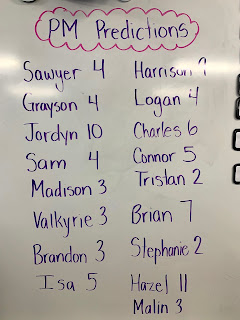 PM Predictions
Sawyer 4
Grayson 4
Jordyn 10
Sam 4
Madison 3
Valkyrie 3
Brandon 3
Isa 5
Harrison
Logan 4
Charles 6
Connor 5
Tristan 2
Brian 7
Stephanie 2
Hazel 11
Malin 3